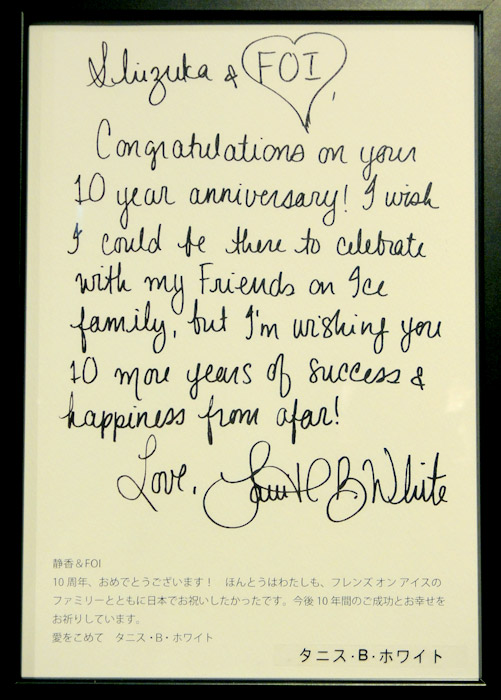 Shizuka & FOI,
Congratulations on your
10 year anniversary! I wish
I could be there to celebrate
with my Friends on Ice
family, but I'm wishing you
10 more years of success &
happiness from afar!
Love, B. White
静香&FOI
10周年、おめでとうございます！　ほんとうはわたしも、フレンズ オン アイスの
ファミリーとともに日本でお祝いしたかったです。今後10年間のご成功とお幸せを
お祈りしています。
愛をこめて　タニス・B・ホワイト
タニス・B・ホワイト